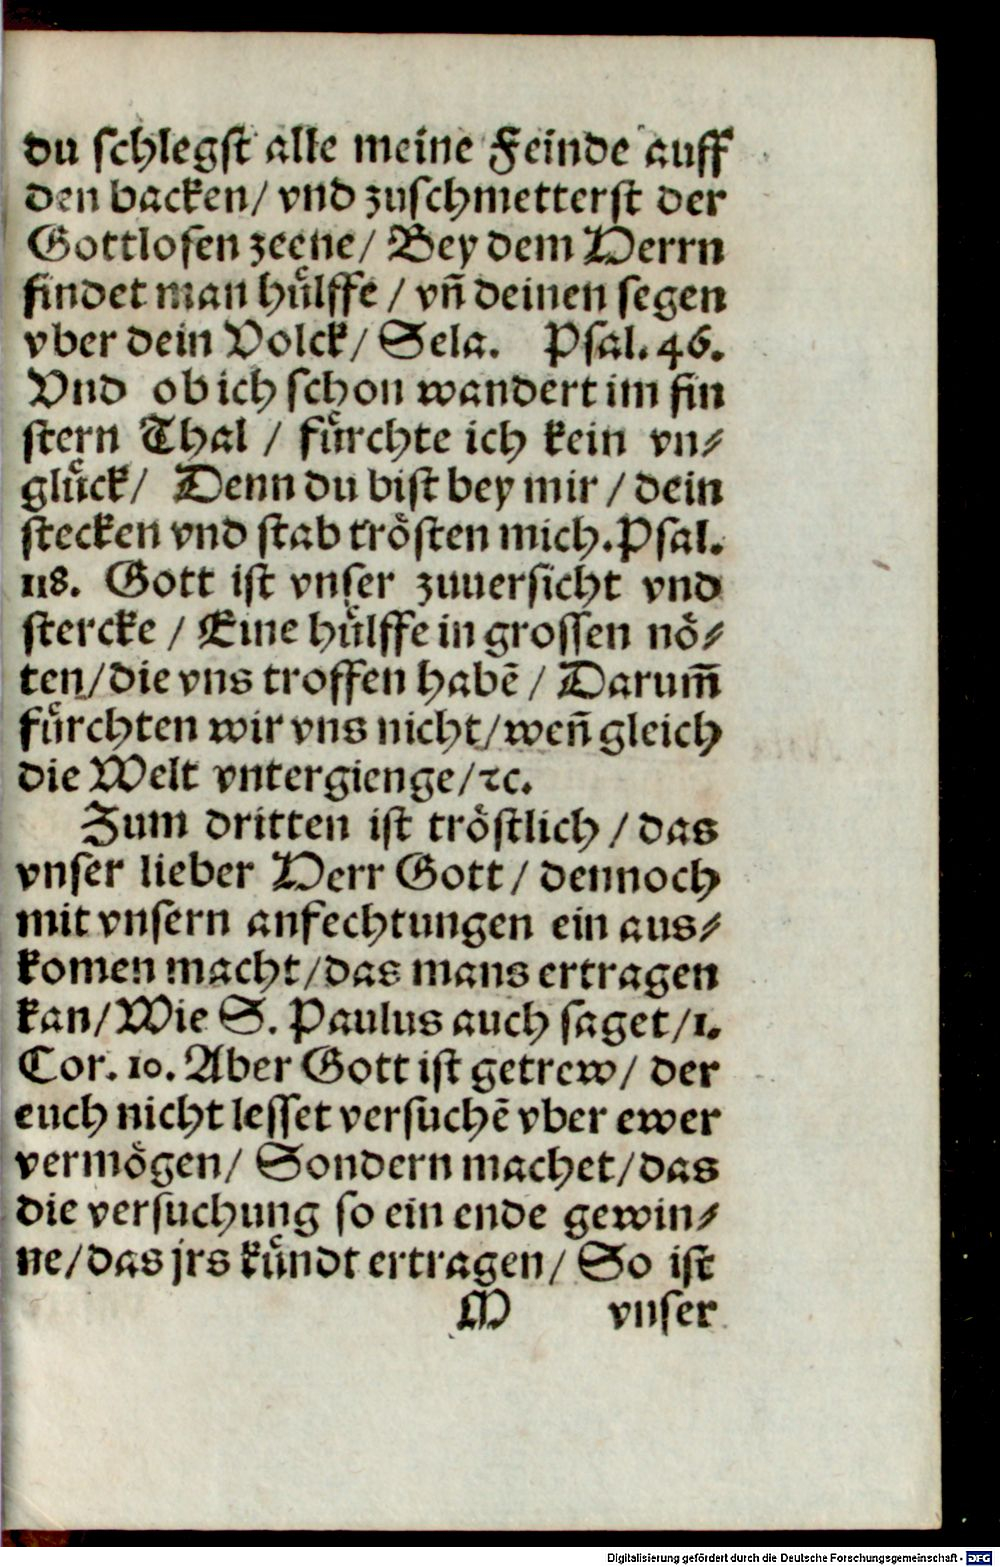 du schlegst alle meine Feinde auff
den backen/ vnd zuschmetterst der
Gottlosen zeene/ Bey dem HErrn
findet man huͤlffe / vñ deinen segen
vber dein Volck/ Sela. Psal. 46.
Vnd ob ich schon wandert im fin
stern Thal / fuͤrchte ich kein vn⸗
gluͤck/ Denn du bist bey mir / dein
stecken vnd stab troͤsten mich. Psal.
118. Gott ist vnser zuuersicht vnd
stercke / Eine huͤlffe in grossen noͤ⸗
ten/ die vns troffen habẽ / Darum̃
fuͤrchten wir vns nicht/ weñ gleich
die Welt vntergienge/ ꝛc.
Zum dritten ist troͤstlich / das
vnser lieber Herr Gott/ dennoch
mit vnsern anfechtungen ein aus⸗
komen macht/ das mans ertragen
kan/ Wie S. Paulus auch saget/ 1.
Cor. 10. Aber Gott ist getrew/ der
euch nicht lesset versuchẽ vber ewer
vermoͤgen/ Sondern machet/ das
die versuchung so ein ende gewin⸗
ne/ das jrs kuͤndt ertragen/ So ist
M vnser
Digitalisierung gefördert durch die Deutsche Forschungsgemeinschaft - DFG